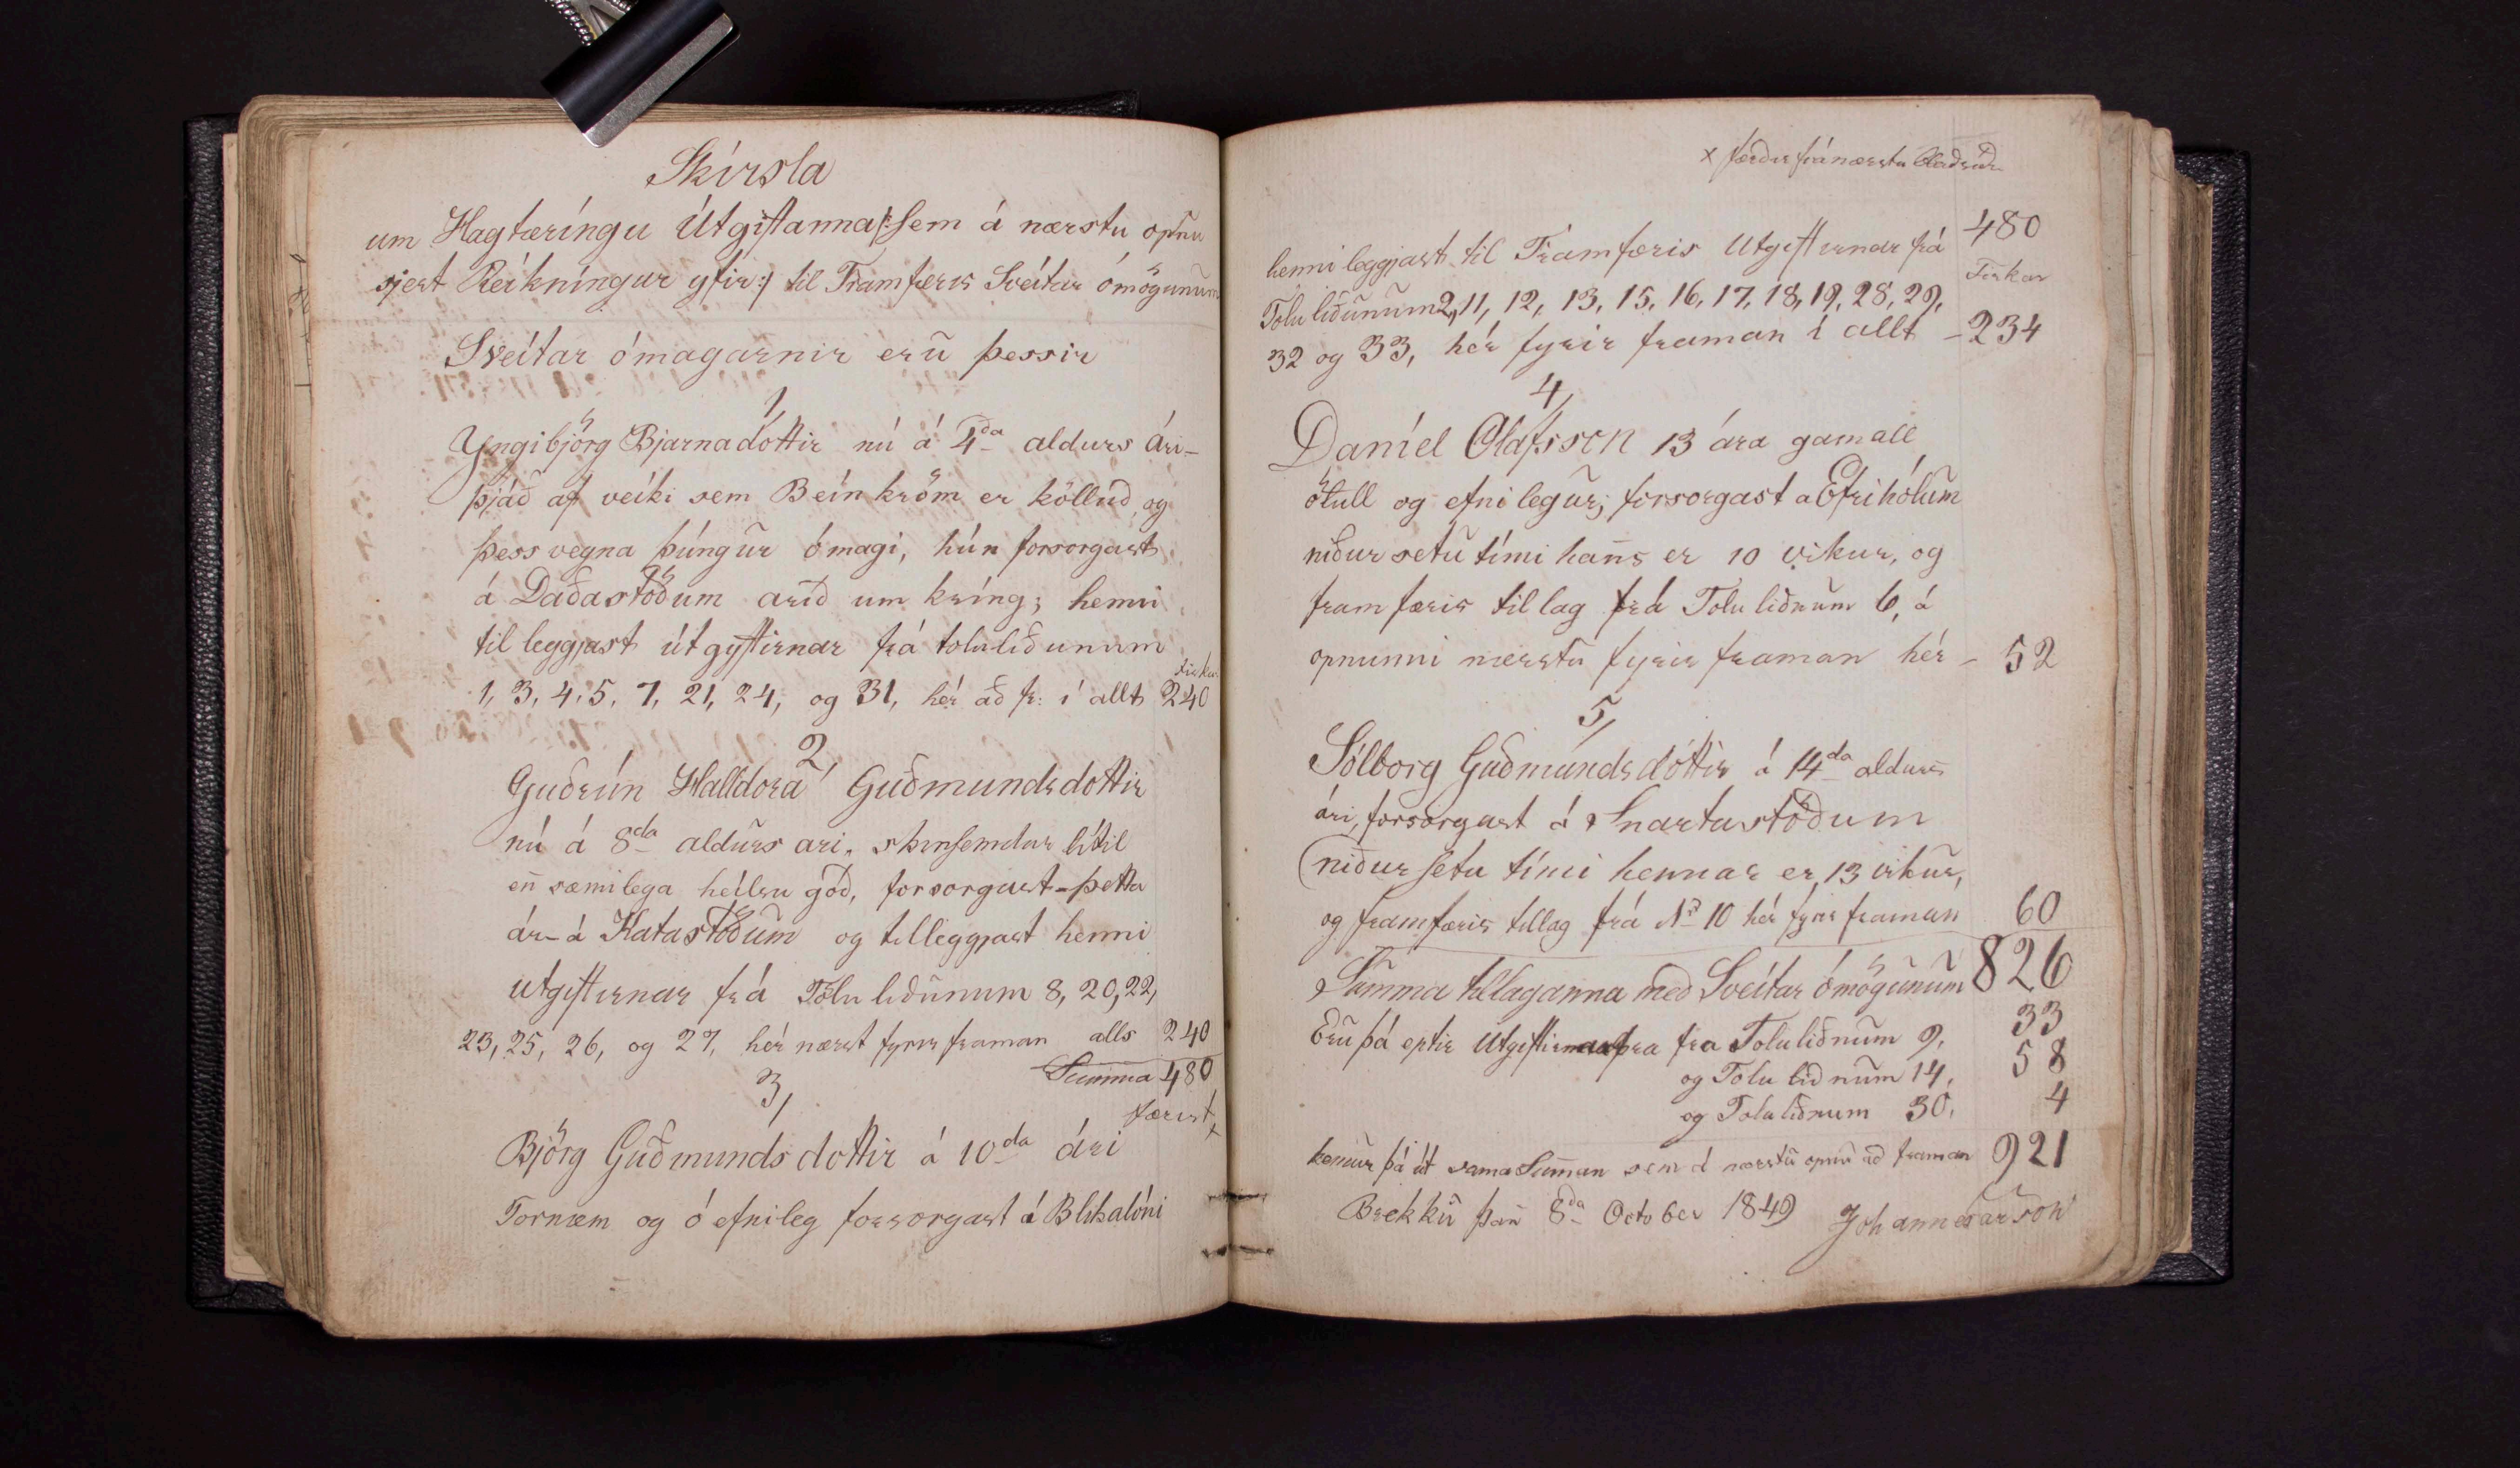 Skírsla
um Hagtæríngu Útgiftanna /: sem á nærstu opnu
sjest Reíkníngur yfir :/ til Framfæris Sveítar ómögunum
Sveítar ómagarnir erú þessir
1,
Yngibjörg Bjarnadóttir nú á 4da aldurs ári -
þjáð af veíki sem Beínkröm er kölluð, og
þess vegna þúngur ómagi, hún forsorgast
á Daðastöðum arið um kríng; henni
til leggjast útgyftirnar frá toluliðunum
fiskar
1, 3, 4, 5, 7, 21, 24, og 31, hér að fr: í allt 240
2,
Guðrún Halldora Guðmundsdottir
nú á 8da aldurs ari, skinsemdar lítil
en̄ sæmilega heílsu góð, forsorgast - þetta
ár - á Katastöðum og tilleggjast henni
utgiftirnar frá Tölu liðunum 8, 20, 22,
23, 25, 26, og 27, hér nærst fyrir framan alls 240
Summa 480
færist x
3,
Björg Guðmundsdottir á 10da ári
Tornæm og óefnileg forsorgast á Blikalóni
x færðir frá nærstu Blaðsíðu
480
henni leggjast til Framfæris Utgiftirnar frá
Fiskar
Tölu liðunum 2, 11, 12, 13, 15, 16, 17, 18, 19, 28, 29,
32 og 33, hér fyrir framan í allt - 234
4,
Daníel Olafsson 13 ára gamall
ötull og efnilegur; forsorgast a Efrihólum
niðursetu tími han̄s er 10 vikur, og
framfæris tillag frá Tolu liðnum 6, á
opnunni nærstu fyrir framan hér - 52
5,
Sólborg Guðmundsdóttir á 14da aldurs
ári, forsorgast á Snartastöðum
niðursetu tími hennar er 13 vikur,
og framfæris tillag frá No 10 hér fyrir framan 60
Summa tillaganna með Sveítar ómögunum 826
Eru þá eptir Utgiftirnar fra Toluliðnum 9, 33
og Tolu liðnum 14, 58
og Toluliðnum 30, 4
kemur þá út sama Summan sem á nærstu opnu að framan 921
Brekku þan̄ 8da October 1849 Johann Árnason